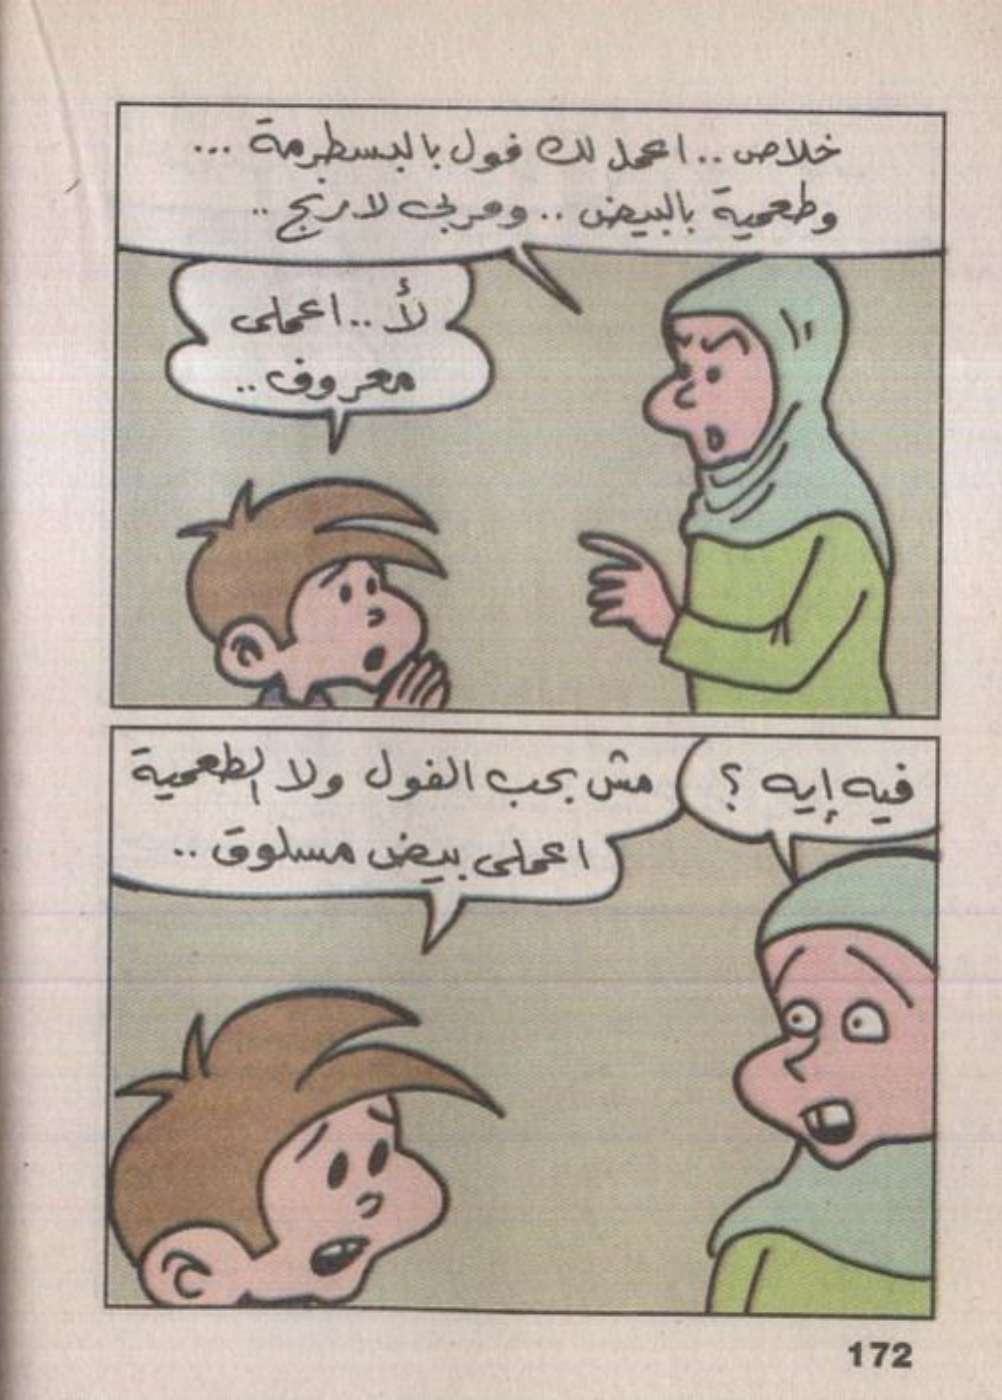 خلاص .. اعمل لك فول بالبسطرمة ...
وطعمية بالبيض .. ومربى لارنج ..
لأ .. اعملى
معروف ..
فيه إيه ؟
مش بحب الفول ولا الطعمية
اعملى بيض مسلوق ..
172